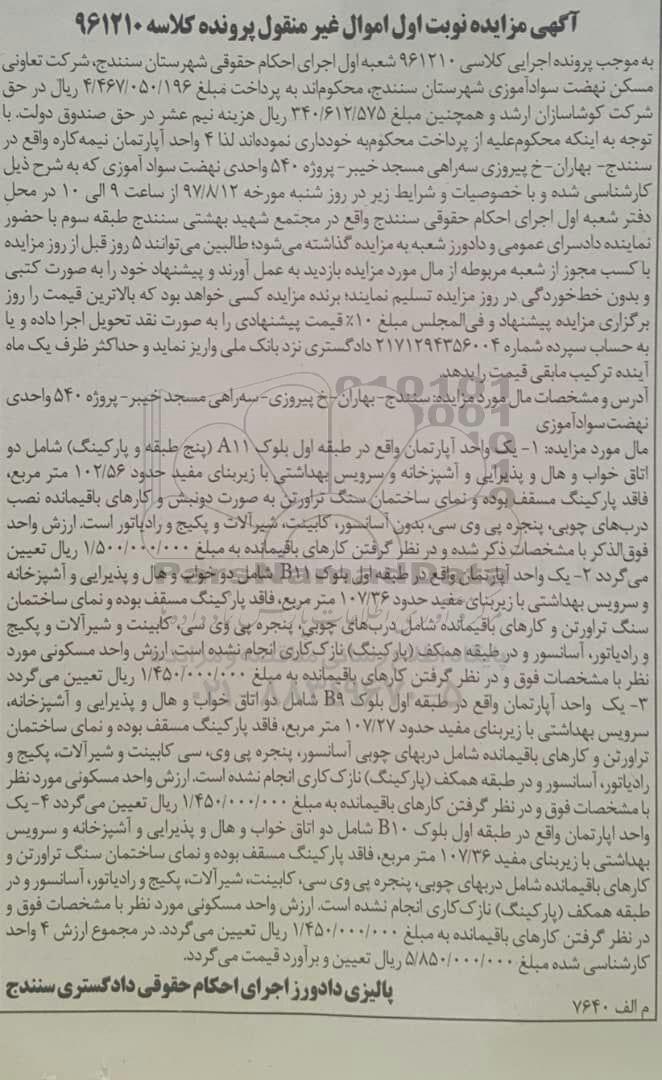 آگهی مزایده نوبت اول اموال غیر منقول پرونده کلاسه ۹۶۱۲۱۰
به موجب پرونده اجرایی کلاسی ۹۶۱۲۱۰ شعبه اول اجرای احکام حقوقی شهرستان سنندج، شرکت تعاونی
مسکن نهضت سوادآموزی شهرستان سنندج، محکوم‌اند به پرداخت مبلغ ۴/۴۶۷/۰۵۰/۱۹۶ ریال در حق
شرکت کوشاسازان ارشد و همچنین مبلغ ۳۴۰/۶۱۲/۵۷۵ ریال هزینه نیم عشر در حق صندوق دولت. با
توجه به اینکه محکوم‌علیه از پرداخت محکوم‌به خودداری نموده‌اند لذا ۴ واحد آپارتمان نیمه‌کاره واقع در
سنندج- بهاران-خ پیروزی سه‌راهی مسجد خیبر- پروژه ۵۴۰ واحدی نهضت سواد آموزی که به شرح ذیل
کارشناسی شده و با خصوصیات و شرایط زیر در روز شنبه مورخه ۹۷/۸/۱۲ از ساعت ۹ الی ۱۰ در محل
دفتر شعبه اول اجرای احکام حقوقی سنندج واقع در مجتمع شهید بهشتی سنندج طبقه سوم با حضور
نماینده دادسرای عمومی و دادورز شعبه به مزایده گذاشته می‌شود؛ طالبین می‌توانند ۵ روز قبل از روز مزایده
با کسب مجوز از شعبه مربوطه از مال مورد مزایده بازدید به عمل آورند و پیشنهاد خود را به صورت کتبی
و بدون خط‌خوردگی در روز مزایده تسلیم نمایند؛ برنده مزایده کسی خواهد بود که بالاترین قیمت را روز
برگزاری مزایده پیشنهاد و فی‌المجلس مبلغ ۱۰٪ قیمت پیشنهادی را به صورت نقد تحویل اجرا داده و یا
به حساب سپرده شماره ۲۱۷۱۲۹۴۳۵۶۰۰۴ دادگستری نزد بانک ملی واریز نماید و حداکثر ظرف یک ماه
آینده ترکیب مابقی قیمت را بدهد.
آدرس و مشخصات مال مورد مزایده: سنندج- بهاران-خ پیروزی-سه‌راهی مسجد خیبر- پروژه ۵۴۰ واحدی
نهضت سوادآموزی
مال مورد مزایده: ۱- یک واحد آپارتمان واقع در طبقه اول بلوک A۱۱ (پنج طبقه و پارکینگ) شامل دو
اتاق خواب و هال و پذیرایی و آشپزخانه و سرویس بهداشتی با زیربنای مفید حدود ۱۰۲/۵۶ متر مربع،
فاقد پارکینگ مسقف بوده و نمای ساختمان سنگ تراورتن به صورت دونبش و کارهای باقیمانده نصب
درب‌های چوبی، پنجره پی وی سی، بدون آسانسور، کابینت، شیرآلات و پکیج و رادیاتور است. ارزش واحد
فوق‌الذکر با مشخصات ذکر شده و در نظر گرفتن کارهای باقیمانده به مبلغ ۱/۵۰۰/۰۰۰/۰۰۰ ریال تعیین
می‌گردد ۲- یک واحد آپارتمان واقع در طبقه اول بلوک B۱۱ شامل دو خواب و هال و پذیرایی و آشپزخانه
و سرویس بهداشتی با زیربنای مفید حدود ۱۰۷/۳۶ متر مربع، فاقد پارکینگ مسقف بوده و نمای ساختمان
سنگ تراورتن و کارهای باقیمانده شامل درب‌های چوبی، پنجره پی وی سی، کابینت و شیرآلات و پکیج
و رادیاتور، آسانسور و در طبقه همکف (پارکینگ) نازک‌کاری انجام نشده است. ارزش واحد مسکونی مورد
نظر با مشخصات فوق و در نظر گرفتن کارهای باقیمانده به مبلغ ۱/۴۵۰/۰۰۰/۰۰۰ ریال تعیین می‌گردد
۳- یک واحد آپارتمان واقع در طبقه اول بلوک B۹ شامل دو اتاق خواب و هال و پذیرایی و آشپزخانه،
سرویس بهداشتی با زیربنای مفید حدود ۱۰۷/۲۷ متر مربع، فاقد پارکینگ مسقف بوده و نمای ساختمان
تراورتن و کارهای باقیمانده شامل دربهای چوبی آسانسور، پنجره پی وی، سی کابینت و شیرآلات، پکیج و
رادیاتور، آسانسور و در طبقه همکف (پارکینگ) نازک‌کاری انجام نشده است. ارزش واحد مسکونی مورد نظر
با مشخصات فوق و در نظر گرفتن کارهای باقیمانده به مبلغ ۱/۴۵۰/۰۰۰/۰۰۰ ریال تعیین می‌گردد ۴- یک
واحد اپارتمان واقع در طبقه اول بلوک B۱۰ شامل دو اتاق خواب و هال و پذیرایی و آشپزخانه و سرویس
بهداشتی با زیربنای مفید ۱۰۷/۳۶ متر مربع، فاقد پارکینگ مسقف بوده و نمای ساختمان سنگ تراورتن و
کارهای باقیمانده شامل دربهای چوبی، پنجره پی وی سی، کابینت، شیرآلات، پکیج و رادیاتور، آسانسور و در
طبقه همکف (پارکینگ) نازک‌کاری انجام نشده است. ارزش واحد مسکونی مورد نظر با مشخصات فوق و
در نظر گرفتن کارهای باقیمانده به مبلغ ۱/۴۵۰/۰۰۰/۰۰۰ ریال تعیین می‌گردد. در مجموع ارزش ۴ واحد
کارشناسی شده مبلغ ۵/۸۵۰/۰۰۰/۰۰۰ ریال تعیین و برآورد قیمت می‌گردد.
پالیزی دادورز اجرای احکام حقوقی دادگستری سنندج
م الف ۷۶۴۰